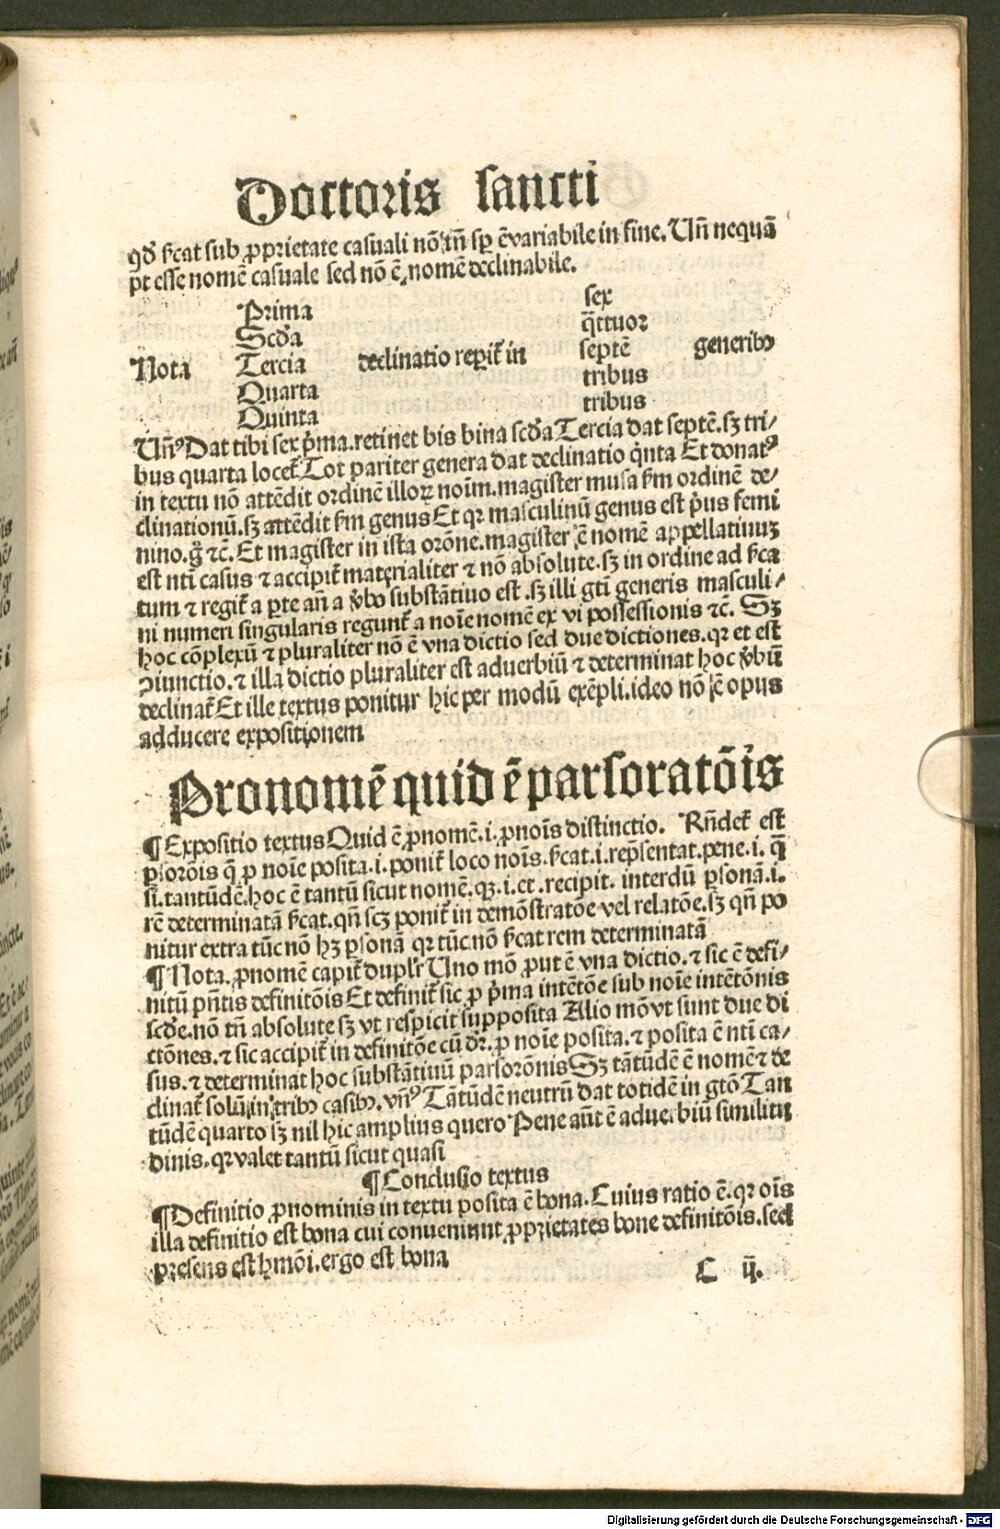 Doctoris sancti
qd' ſicat sub ꝓprietate casuali nō tn̄ sp ē variabile in fine. Un̄ nequā
pt esse nomē casuale sed nō ē nomē declinabile.
Prima sex
Scd'a q̄ttuor
Nota Tercia declinatio reꝑit̉ in septē generibꝰ
Quarta tribus
Quinta tribus
Un̄ꝰ Dat tibi sex p̄ma. retinet bis bina scd'a Tercia dat septē. sꝫ tri/
bus quarta locet̉ Tot pariter genera dat declinatio q̇nta Et donatꝰ
in textu nō attēdit ordinē illoꝝ noīm. magister musa ẜm ordinē de/
clinationū. sꝫ attēdit ẜm genus Et qꝛ masculinū genus est p̄us femi
nino. g̊ ⁊c̄. Et magister in ista orōne. magister ē nomē appellatiuuꝫ
est nti casus ⁊ accipit̉ materialiter ⁊ nō absolute. sꝫ in ordine ad ſica
tum ⁊ regit̉ a ꝑte an̄ a v̄bo substātiuo est. sꝫ illi gti generis masculi/
ni numeri singularis regunt̉ a noīe nomē ex vi possessionis ⁊c̄. Sꝫ
hoc cōplexū ⁊ pluraliter nō ē vna dictio sed due dictiones. qꝛ et est
ꝯiunctio. ⁊ illa dictio pluraliter est aduerbiū ⁊ determinat hoc v̄bū
declinat̉ Et ille textus ponitur hic per modū exēpli. ideo nō ē opus
adducere expositionem
Pronomē quid ē parsoratōis
¶ Expositio textus Quid ē ꝓnomē .i. ꝓnoīs distinctio. Rn̄det̉ est
ꝑs orōis q̄ ꝓ noīe posita .i. ponit̉ loco noīs. ſicat .i. rep̄sentat. pene .i. q̄
si. tantūdē. hoc ē tantū sicut nomē. qꝫ .i. et. recipit. interdū ꝑsonā .i.
rē determinatā ſicat. qn̄ scꝫ ponit̉ in demōstratōe vel relatōe. sꝫ qn̄ po
nitur extra tūc nō hꝫ ꝑsonā qꝛ tūc nō ſicat rem determinatā
¶ Nota. ꝓnomē capit̉ dupl'r Uno mō ꝓut ē vna dictio. ⁊ sic ē defi/
nitū pn̄tis definitōis Et definit̉ sic ꝓ p̄ma intētōe sub noīe intētōnis
scd'e. nō tn̄ absolute sꝫ vt respicit supposita Alio mō vt sunt due di
ctōnes. ⁊ sic accipit̉ in definitōe cū dr̄. ꝓ noīe posita. ⁊ posita ē nti ca/
sus. ⁊ determinat hoc substātiuū parsorōnis Sꝫ tātūdē ē nomē ⁊ de
clinat̉ solū in tribꝰ casibꝰ. vn̄ꝰ Tātūdē neutrū dat totidē in gtō Tan
tūdē quarto sꝫ nil hic amplius quero Pene aūt ē aduerbiū similitu
dinis. qꝛ valet tantū sicut quasi
¶ Conclusio textus
¶ Definitio ꝓnominis in textu posita ē bona. Cuius ratio ē. qꝛ oīs
illa definitio est bona cui conueniunt ꝓprietates bone definitōis. sed
presens est hmōi. ergo est bona
C ij.
Digitalisierung gefördert durch die Deutsche Forschungsgemeinschaft - DFG